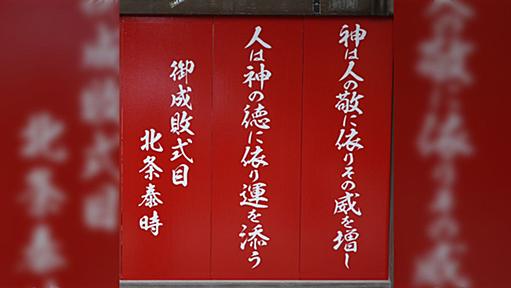 神は人の敬に依りその威を増し
人は神の徳に依り運を添う
御成敗式目
北条泰時